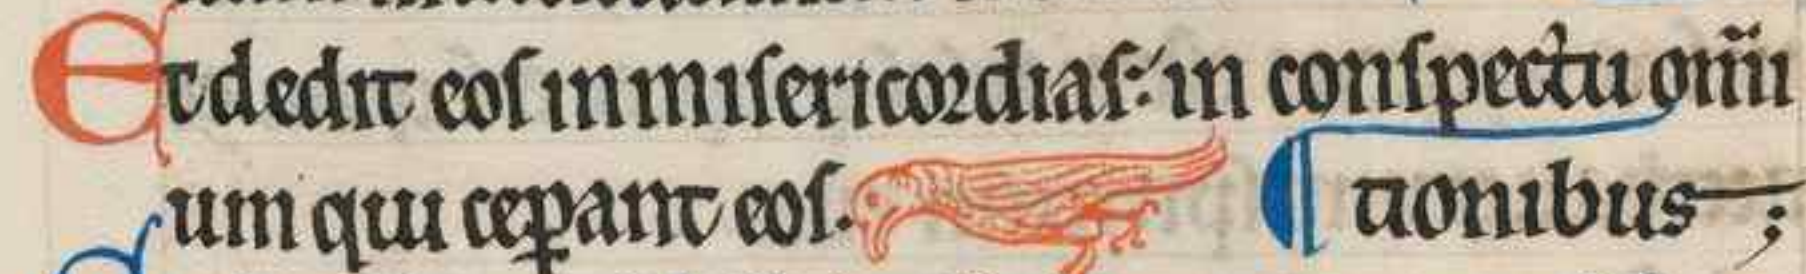 Et dedit eoſ in miſericordiaſ: in conſpectu om̅i
um qui cep̱ant eoſ. ¶ tionibus;